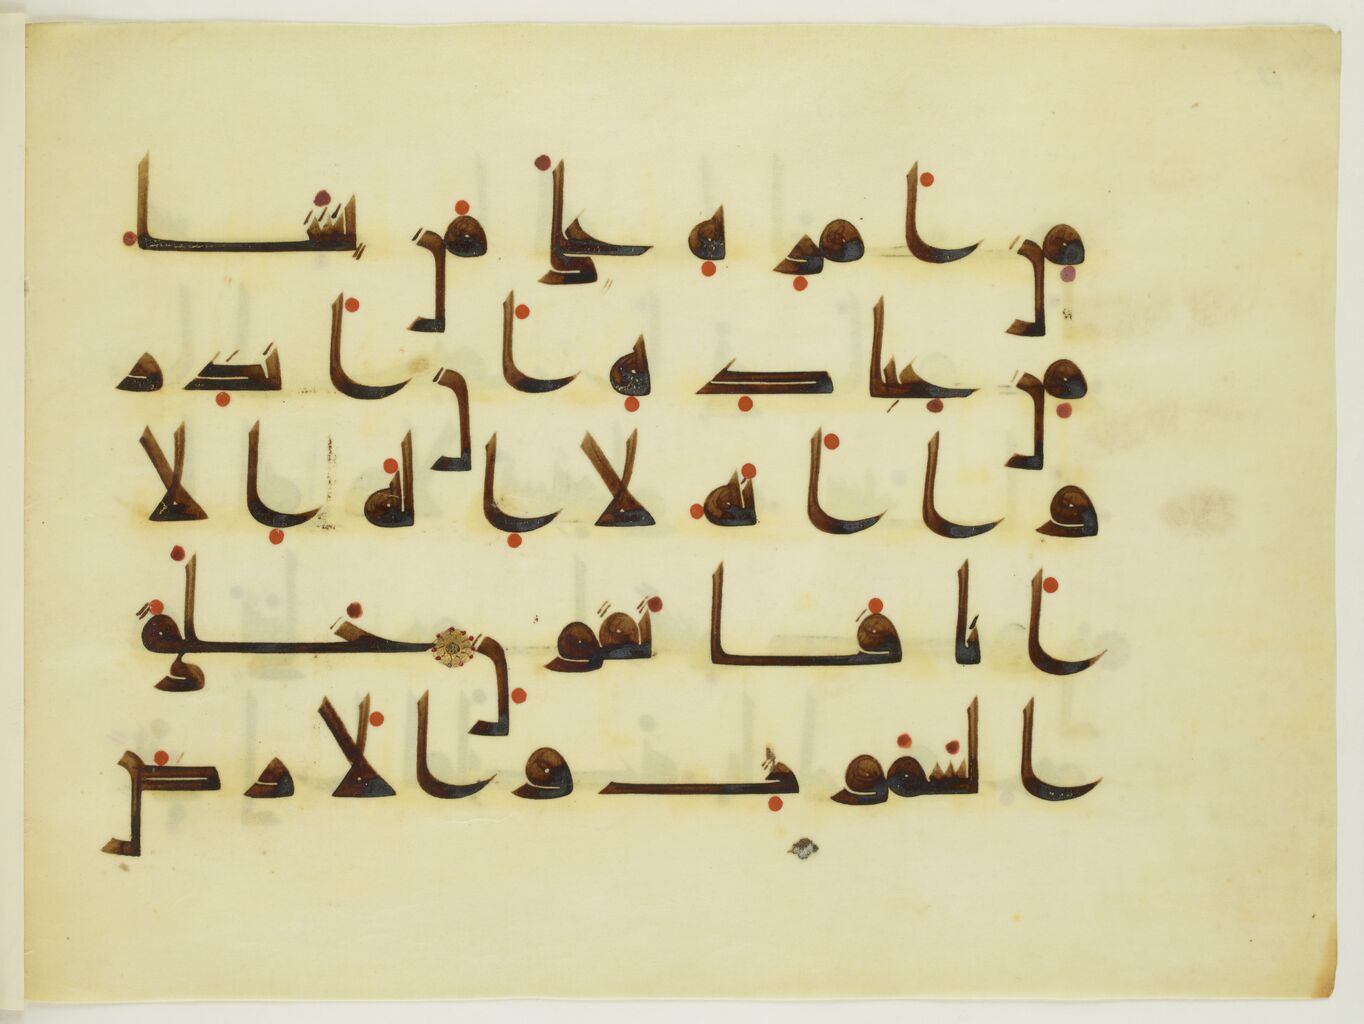 من امره على من يشا
من عباده ان انذر
وا انه لا اله الا
انا فاتقون خلق
السموت والارض